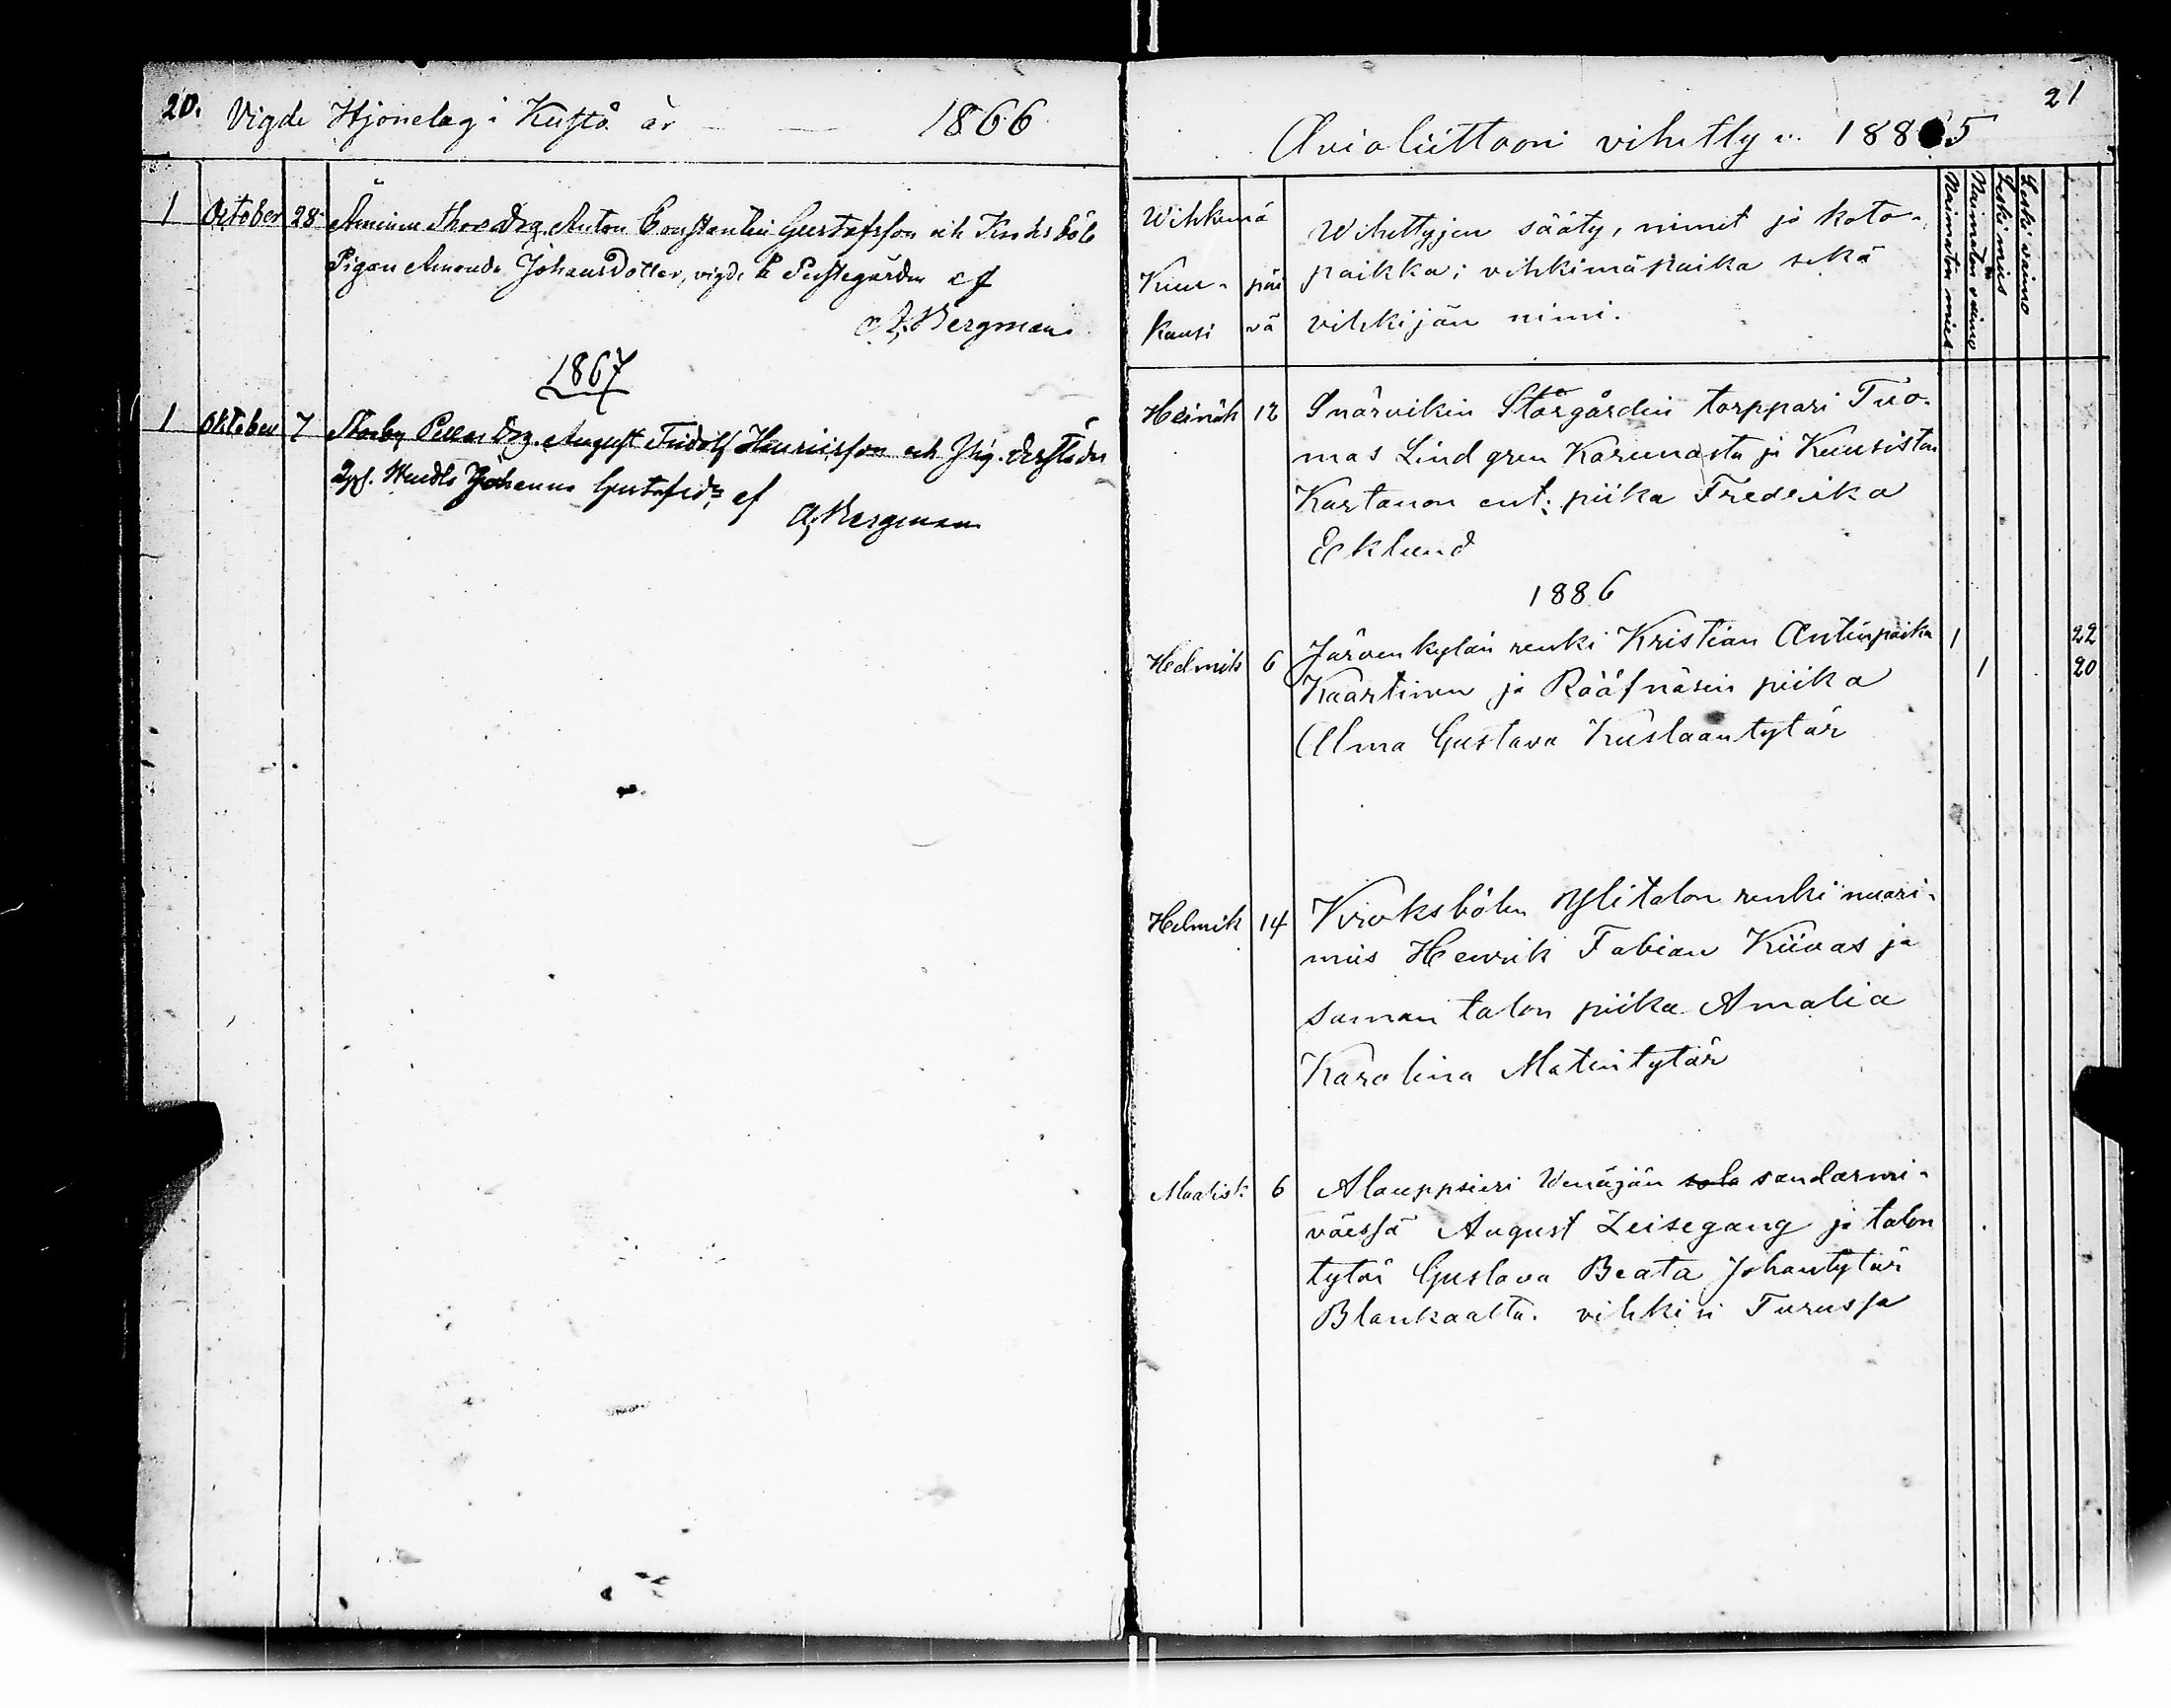 20. Vigde Hjonelag i Kustö år 1866
1 October 28 Änninen Thor Drg. Anton Constantin Gustafsson och Kroksböle
Pigan Amanda Johansdotter, vigde å Prestegården af
A. Bergman
1867
1 Oktober 7 Storby Pellas Drg. August Fridolf Henricsson och Pig. derstädes
Johanna Gustafsdr, af
A. Bergman
21
Avioliittoon vihitty v. 1885
Wihkimä
Kuu- päi
kausi vä
Wihittyjen sääty, nimet ja koto-
paikka; vihkimäpaika sekä
vihkijän nimi.
Naimaton mies
Naimaton vaimo
Leski mies
Leski vaimo
Heinäk 12 Snärvikin Storgårdin torppari Tuo-
mas Lindgren Karunasta ja Kuusiston
Kartanon ent. piika Fredrika
Ecklund
1886
Helmik 6 Järvenkylän renki Kristian Antinpoika 1 22
Kaartinen ja Rääfnäsin piika 1 20
Alma Gustava Kustaantytär
Helmik 14 Kroksbölen Ylitalon renki nuori-
mies Henrik Fabian Kiivas ja
saman talon piika Amalia
Karolina Matintytär
Maalisk 6 Alauppsieri Venäjän sandarmi-
väessä August Zeisegang ja talon
tytär Gustava Beata Johantytär
Blankaalta. vihkisi Turussa